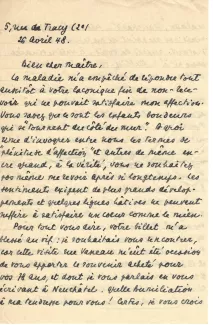 5, rue de Tracy (2e)
26 Avril 48.
Bien cher Maître,
La maladie m'a empêché de répondre tout
aussitôt à votre laconique fin de non-rece-
voir qui ne pouvait satisfaire mon affection.
Vous savez que ce sont les enfants boudeurs
qui se tournent du côté du mur? A quoi
sert d'invoquer entre nous les termes de
d'affection et autres de même en-
cre quand, à la vérité, vous ne souhaitez
pas même me revoir après si longtemps. Les
sentiments exigent de plus grands dévelop-
pements et quelques lignes hâtives ne peuvent
suffire à satisfaire un cœur comme le mien.
Pour tout vous dire, votre billet m'a
blessé au vif: je souhaitais vous rencontrer,
car cette visite me
de vous apporter le souvenir acheté pour
vos ans, et dont je vous parlais en vous
écrivant à Neuchâtel. Quelle humiliation
à ma tendresse pour vous! Certes, je vous crois